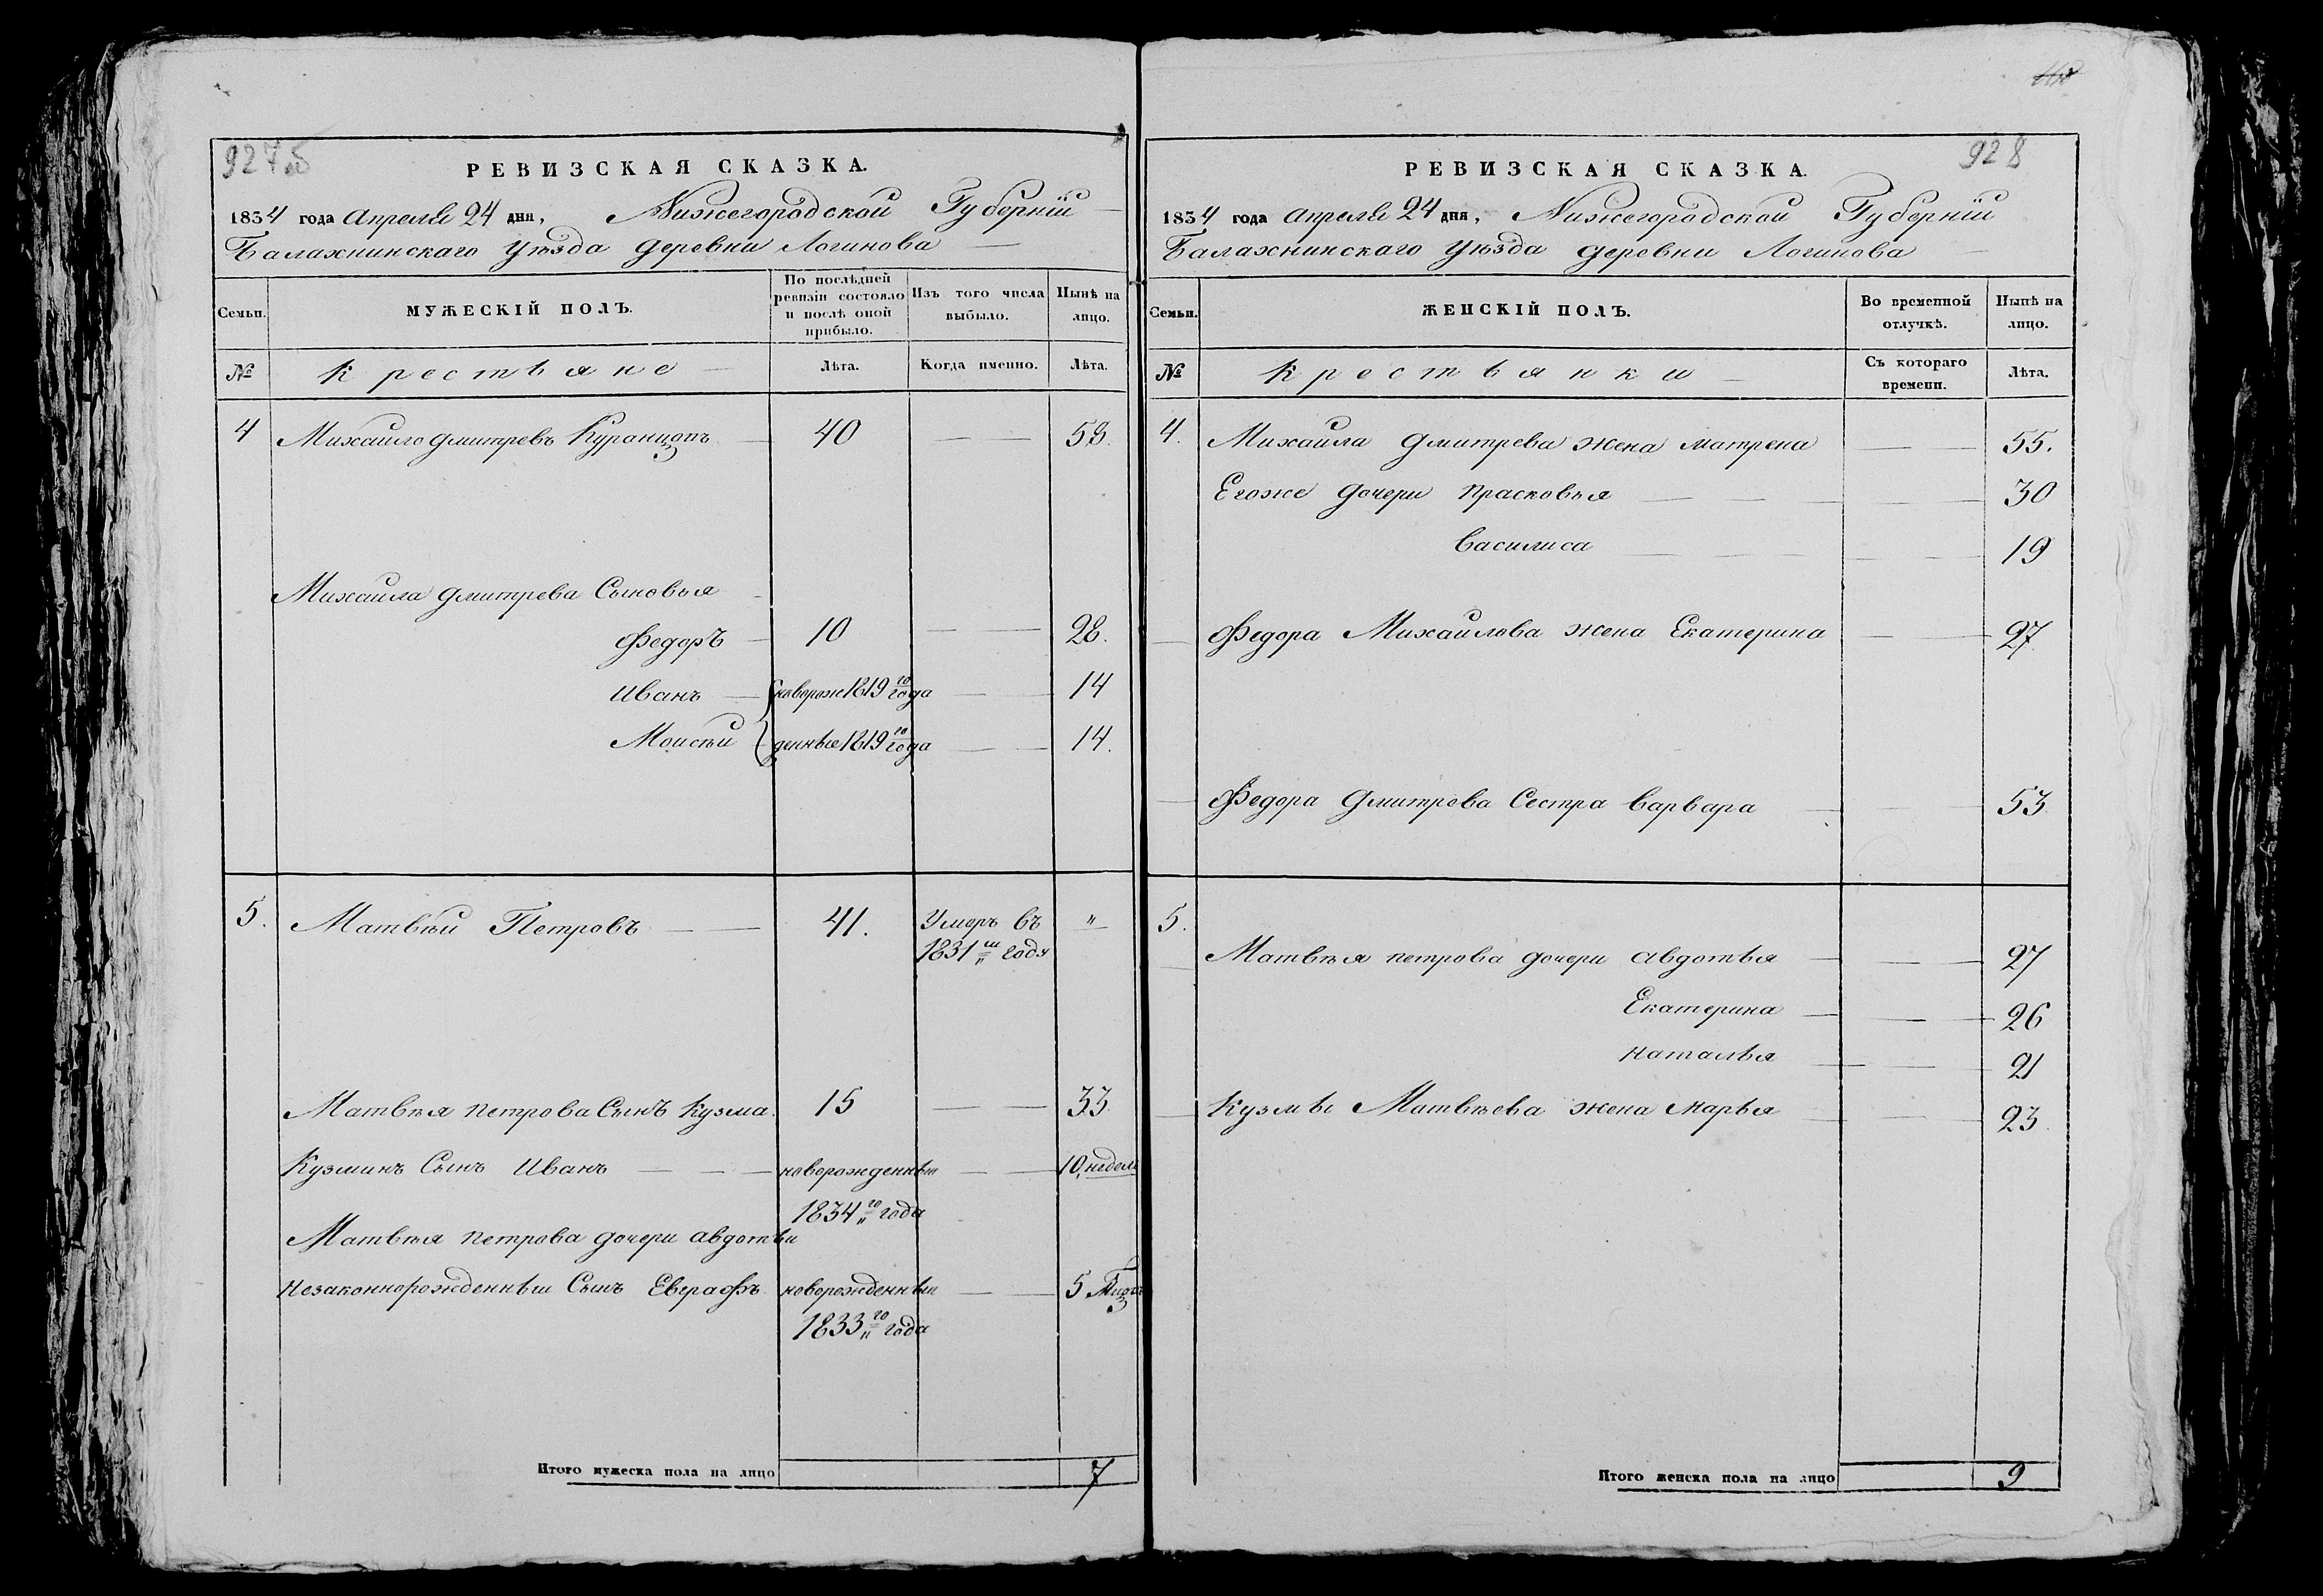 927об
РЕВИЗСКАЯ СКАЗКА.
1834 года Апреля 24 дня, Нижегородской Губернiи
Балахнинскаго уѣзда деревни Логинова
Семьи.
МУЖЕСКIЙ ПОЛЪ.
По послѣдней ревизiи состояло и послѣ оной прибыло.
Изъ того числа выбыло.
Нынѣ на лицо.
№
Крестьяне
Лѣта.
Когда именно.
Лѣта.
4 Михайло Дмитревъ 40 58.
Михайла Дмитрева Сыновья
Федоръ 10 28.
Иванъ новорож 1819го года 14
Моисѣй денные 1819го года 14.
5. Матвѣй Петровъ 41. Умеръ въ "
1831м году
Матвѣя Петрова Сынъ Кузма. 15 33.
Кузминъ Сынъ Иванъ новорожденный 10 недель
1834го года
Матвѣя Петрова дочери Авдотьи
Незаконнорожденный Сынъ Евграфъ новорожденный 5
1833го года
Итого мужеска пола на лицо 7
928
РЕВИЗСКАЯ СКАЗКА.
1834 года Апреля 24 дня, Нижегородской Губернiи
Балахнинскаго уѣзда деревни Логинова
Семьи.
ЖЕНСКIЙ ПОЛЪ.
Во временной отлучкѣ.
Нынѣ на лицо.
№
Крестьянки
Съ котораго времени.
Лѣта.
4. Михайла Дмитрева жена Матрена 55.
Егоже дочери Прасковья 30
Василиса 19
Федора Михайлова жена Екатерина 27
Федора Дмитрева Сестра Варвара 53
5.
Матвѣя Петрова дочери Авдотья 27
Екатерина 26
Наталья 21
Кузмы Матвѣева жена Марья 23
Итого женска пола на лицо 9